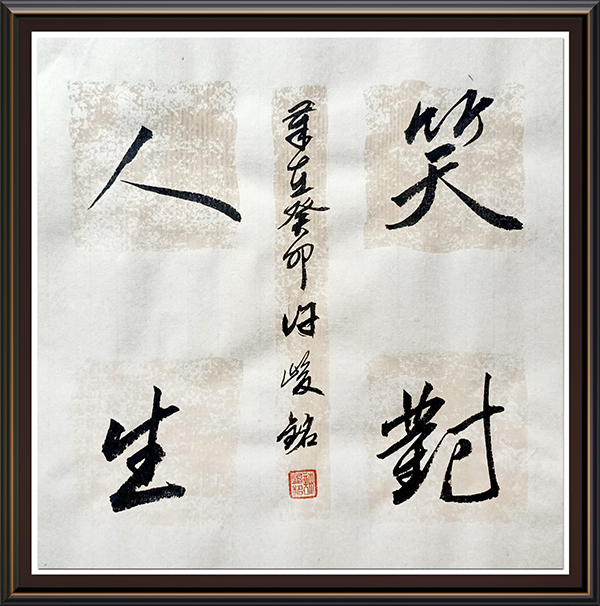 笑對
人生
歲在癸卯許峻銘